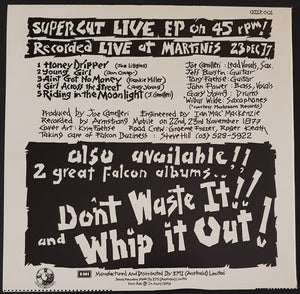 SUPERCUT LIVE EP on 45 rpm!
Recorded LIVE at MARTINIS 23 DEC 77
1 Honey Dripper (Joe Liggins)
2 Young Girl
3 Ain't Got No Money (Frankie Miller)
4 Girl Across the Street (Gary Young)
5 Riding in the Moonlight (J. Camilleri)
Joe Camilleri: Lead Vocals, Sax.
Jeff Burstin: Guitar
Tony Faehse: Guitar
John Power: Bass, Vocals
Gary Young: Drums
Wilbur Wilde: Saxophones
(courtesy Mushroom Records)
Produced by Joe Camilleri Engineered by Ian Mac Mackenzie
Recorded by Armstrongs Mobile on 22nd, 23rd November 1977
Cover Art: Kym Faehse Road Crew: Graeme Frazer, Roger Heath
Taking care of Falcon Business: Steve Hill (03) 529-5922
also available!!
2 great Falcon albums..
Don't Waste It!!
and Whip it Out!
EMI
Manufactured And Distributed By EMI (Australia) Limited